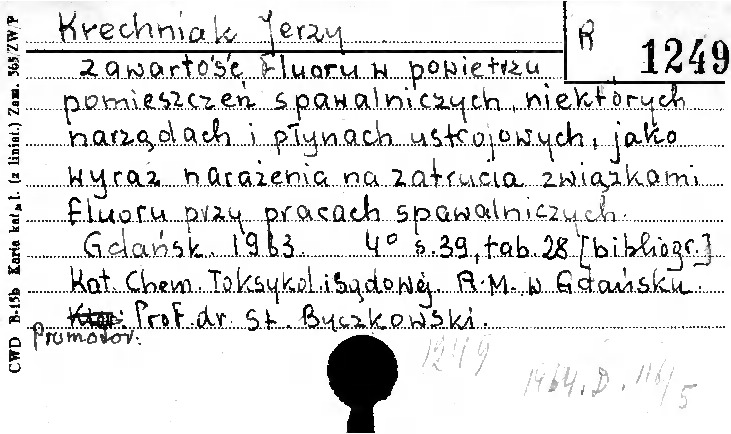 Krechniak Jerzy
R 1249
Zawartość fluoru w powietrzu
pomieszczeń spawalniczych, niektórych
narządach i płynach ustrojowych, jako
wyraz narażenia na zatrucia związkami
fluoru przy pracach spawalniczych.
Gdańsk. 1963. 4° s.39, tab.28 [bibliogr.]
Kat. Chem. Toksykol. i Sądowej. A.M. w Gdańsku.
Prof. dr. St. Byczkowski.
Promotor:
1249
1964. D. 116/5
CWD B-15b Karta kat. l. (z liniat.) Zam. 365/ZW/P